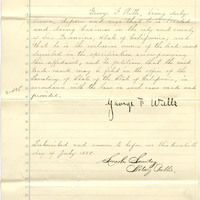 George F. Wells, being duly
sworn, deposes and says that he is a resident
and doing business in the city and county
of San Francisco, State of California, and
that he is the exclusive owner of the trade mark
described in the specification
this affidavit, and he petitions that the said
trade mark may be filed in the office of the
Secretary of State of the State of California, in
accordance with the law in such case made and
provided.
George F Wells
Subscribed and sworn to before me this
day of July 1885.
Notary Public.